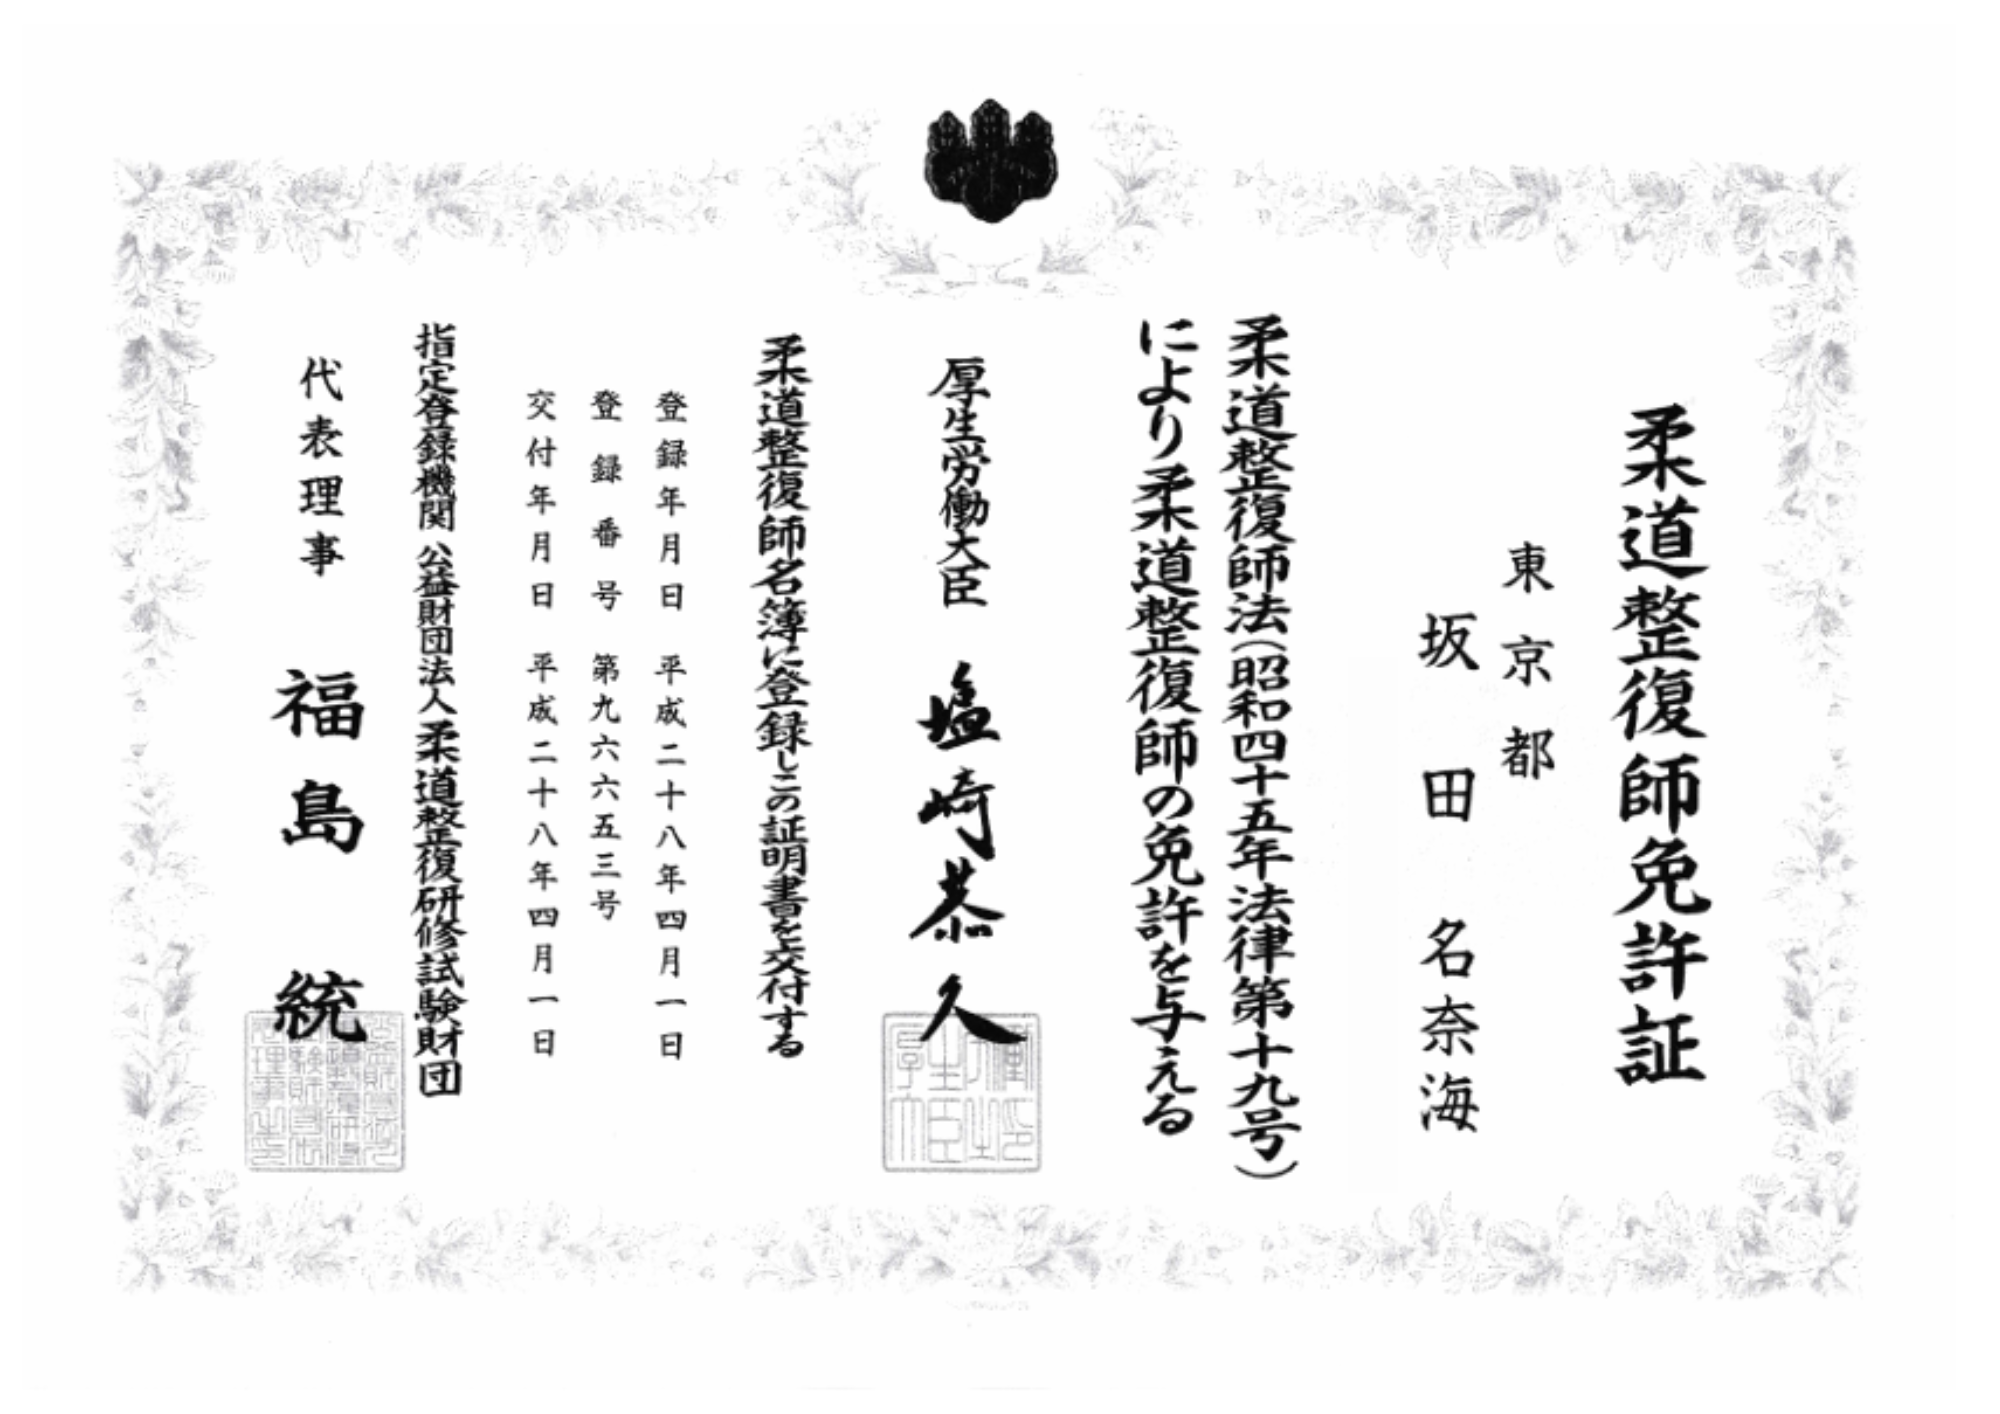 柔道整復師免許証
東京都
坂田 名奈海
柔道整復師法(昭和四十五年法律第十九号)
により柔道整復師の免許を与える
厚生労働大臣 塩崎恭久
柔道整復師名簿に登録しこの証明書を交付する
登録年月日 平成二十八年四月一日
登録番号 第九六六五三号
交付年月日 平成二十八年四月一日
指定登録機関 公益財団法人柔道整復研修試験財団
代表理事 福島 統